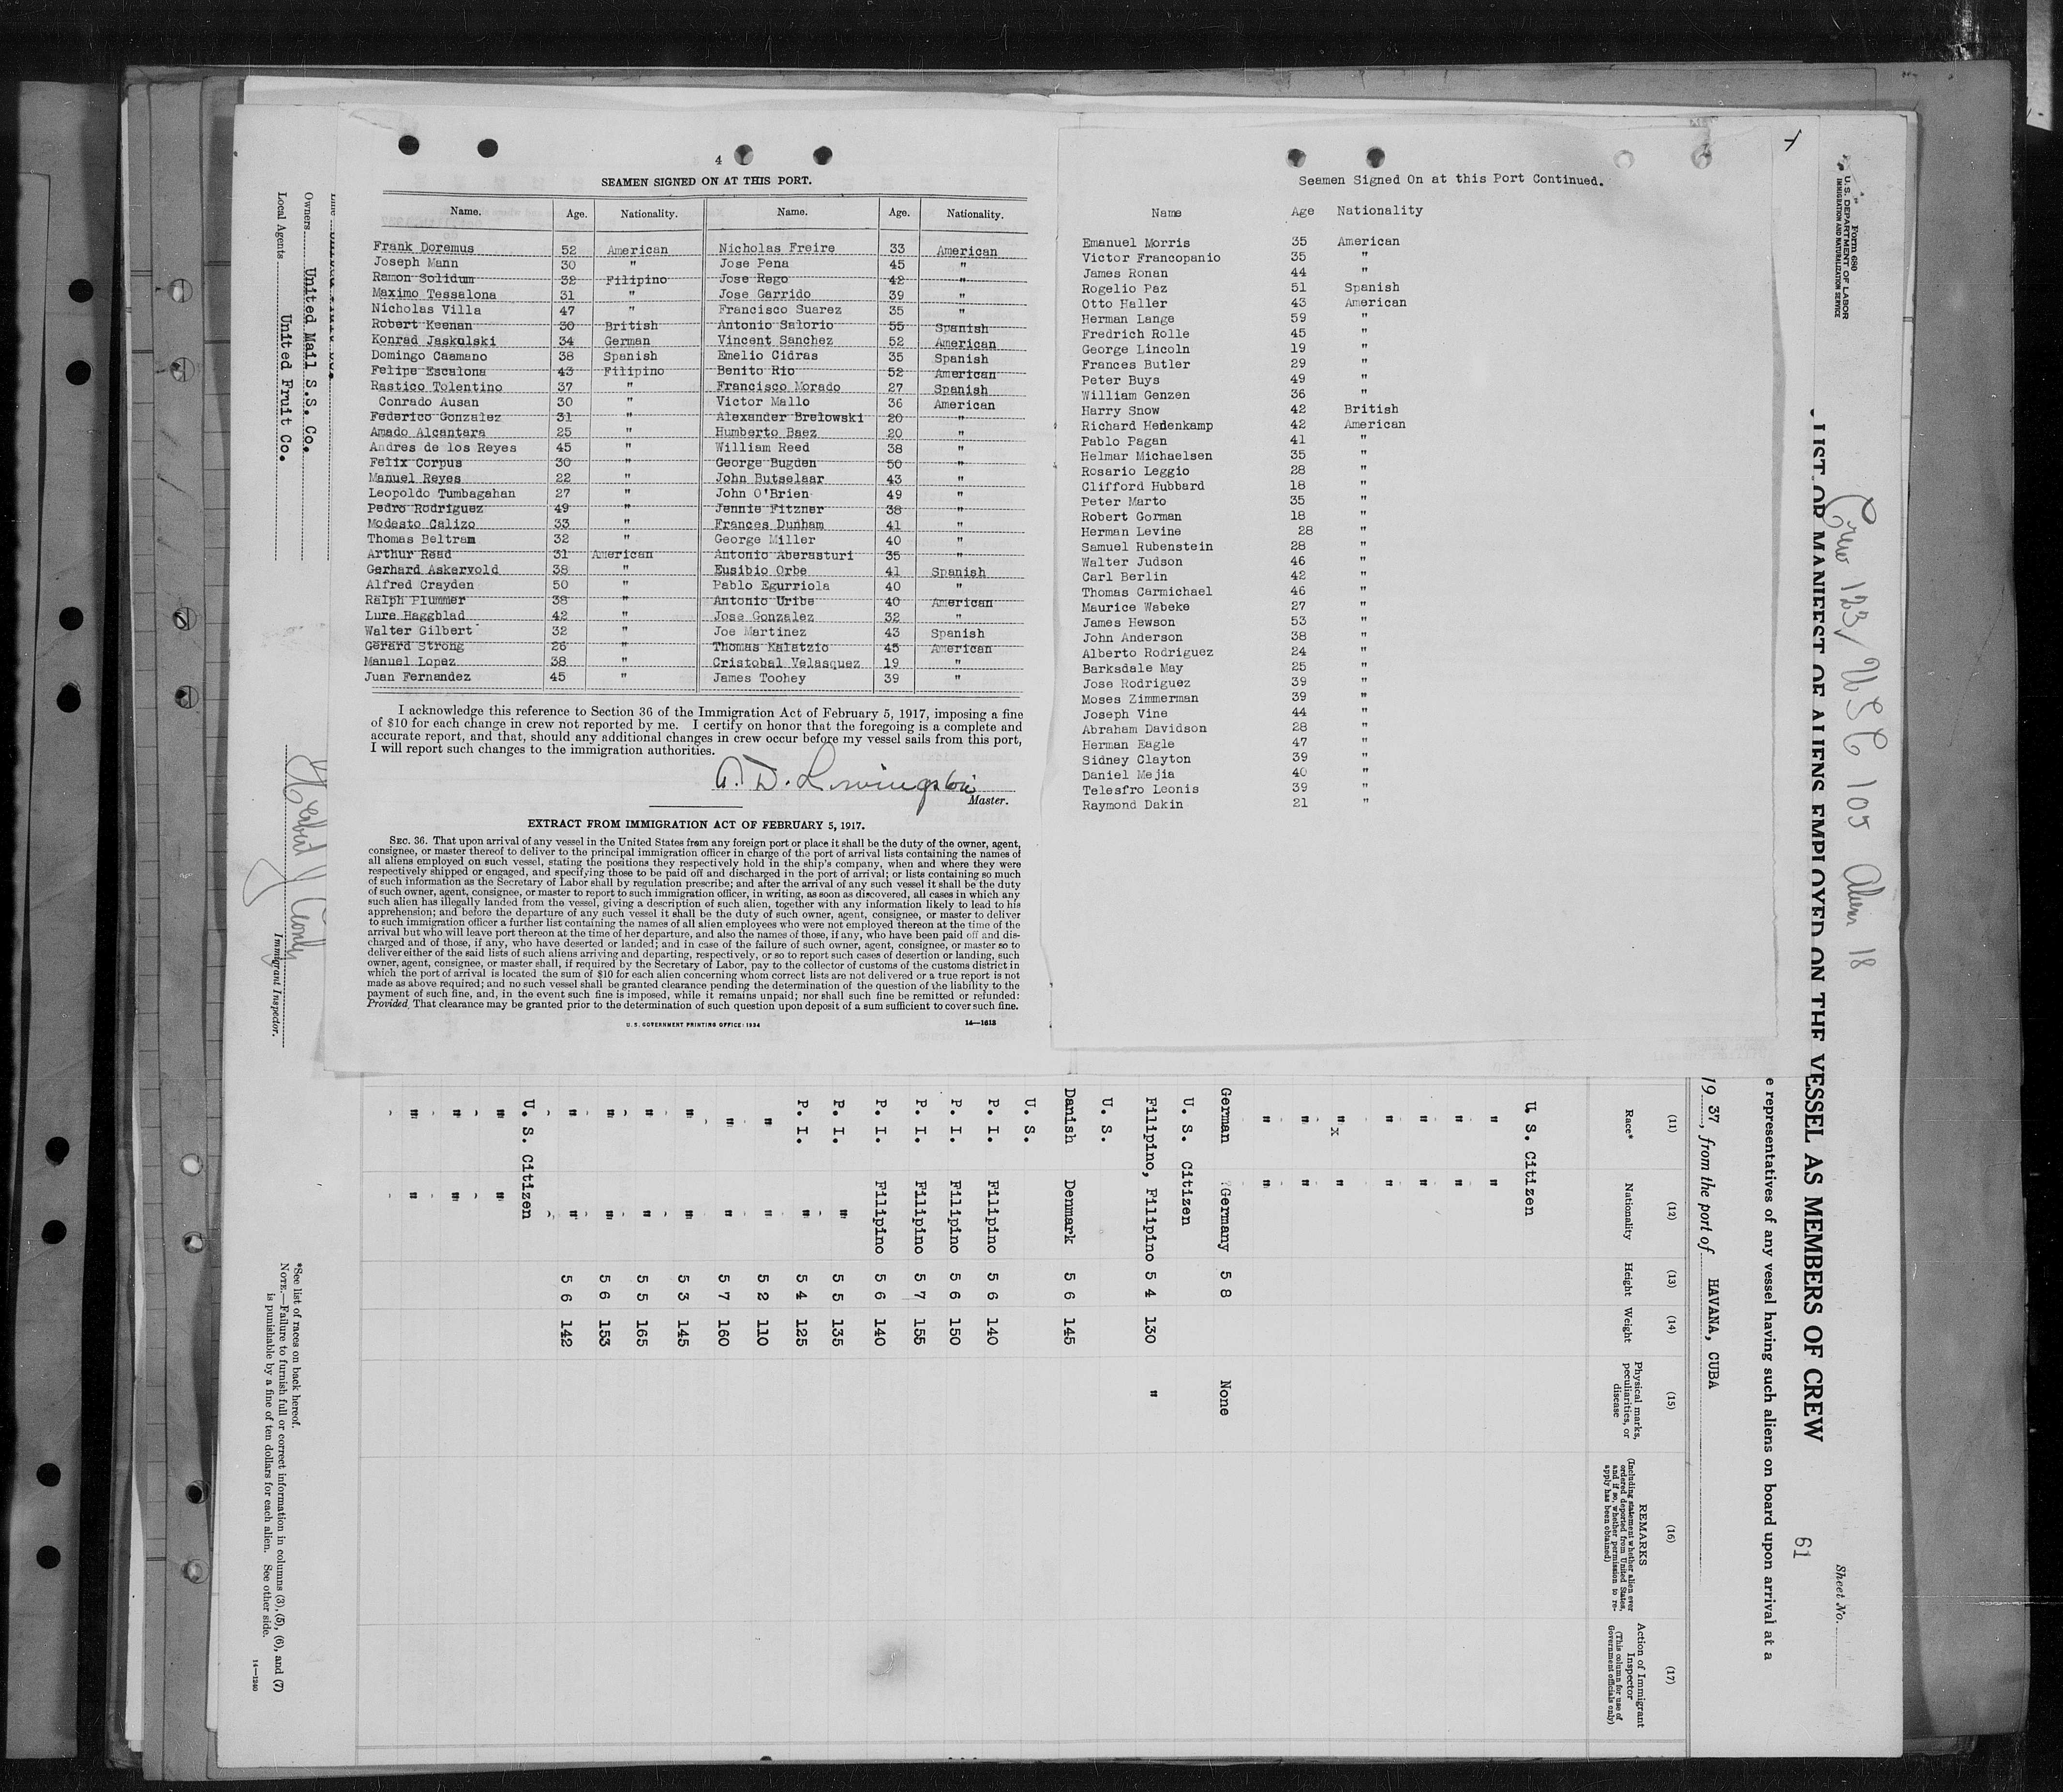 4
SEAMEN SIGNED ON AT THIS PORT.
Name. Age. Nationality. Name. Age. Nationality.
Frank Doremus 52 American Nicholas Freire 33 American
Joseph Mann 30 " Jose Pena 45 "
Ramon Solidum 32 Filipino Jose Rego 42 "
Maximo Tessalona 31 " Jose Garrido 39 "
Nicholas Villa 47 " Francisco Suarez 35 "
Robert Keenan 30 British Antonio Salorio 55 Spanish
Konrad Jaskulski 34 German Vincent Sanchez 52 American
Domingo Caamano 38 Spanish Emelio Cidras 35 Spanish
Felipe Escalona 43 Filipino Benito Rio 52 American
Rastico Tolentino 37 " Francisco Morado 27 Spanish
Conrado Ausan 30 " Victor Mallo 36 American
Federico Gonzalez 31 " Alexander Brelowski 20 "
Amado Alcantara 25 " Humberto Baez 20 "
Andres de los Reyes 45 " William Reed 38 "
Felix Corpus 30 " George Bugden 50 "
Manuel Reyes 22 " John Butselaar 43 "
Leopoldo Tumbagahan 27 " John O'Brien 49 "
Pedro Rodriguez 49 " Jennie Fitzner 38 "
Modesto Calizo 33 " Frances Dunham 41 "
Thomas Beltram 32 " George Miller 40 "
Arthur Read 31 American Antonio Aberasturi 35 "
Gerhard Askervold 38 " Eusibio Orbe 41 Spanish
Alfred Crayden 50 " Pablo Egurriola 40 "
Ralph Plummer 38 " Antonio Uribe 40 American
Lure Haggblad 42 " Jose Gonzalez 32 "
Walter Gilbert 32 " Joe Martinez 43 Spanish
Gerard Strong 26 " Thomas Kalatzio 45 American
Manuel Lopez 38 " Cristobal Velasquez 19 "
Juan Fernandez 45 " James Toohey 39 "
I acknowledge this reference to Section 36 of the Immigration Act of February 5, 1917, imposing a fine
of $10 for each change in crew not reported by me. I certify on honor that the foregoing is a complete and
accurate report, and that, should any additional changes in crew occur before my vessel sails from this port,
I will report such changes to the immigration authorities.
A. D. Livingston
Master.
EXTRACT FROM IMMIGRATION ACT OF FEBRUARY 5, 1917.
SEC. 36. That upon arrival of any vessel in the United States from any foreign port or place it shall be the duty of the owner, agent,
consignee, or master thereof to deliver to the principal immigration officer in charge of the port of arrival lists containing the names of
all aliens employed on such vessel, stating the positions they respectively hold in the ship's company, when and where they were
respectively shipped or engaged, and specifying those to be paid off and discharged in the port of arrival; or lists containing so much
of such information as the Secretary of Labor shall by regulation prescribe; and after the arrival of any such vessel it shall be the duty
of such owner, agent, consignee, or master to report to such immigration officer, in writing, as soon as discovered, all cases in which any
such alien has illegally landed from the vessel, giving a description of such alien, together with any information likely to lead to his
apprehension; and before the departure of any such vessel it shall be the duty of such owner, agent, consignee, or master to deliver
to such immigration officer a further list containing the names of all alien employees who were not employed thereon at the time of the
arrival but who will leave port thereon at the time of her departure, and also the names of those, if any, who have been paid off and dis-
charged and of those, if any, who have deserted or landed; and in case of the failure of such owner, agent, consignee, or master so to
deliver either of the said lists of such aliens arriving and departing, respectively, or so to report such cases of desertion or landing, such
owner, agent, consignee, or master shall, if required by the Secretary of Labor, pay to the collector of customs of the customs district in
which the port of arrival is located the sum of $10 for each alien concerning whom correct lists are not delivered or a true report is not
made as above required; and no such vessel shall be granted clearance pending the determination of the question of the liability to the
payment of such fine, and, in the event such fine is imposed, while it remains unpaid; nor shall such fine be remitted or refunded:
Provided, That clearance may be granted prior to the determination of such question upon deposit of a sum sufficient to cover such fine.
U. S. GOVERNMENT PRINTING OFFICE: 1934 14—1613
Seamen Signed On at this Port Continued.
Name Age Nationality
Emanuel Morris 35 American
Victor Francopanio 35 "
James Ronan 44 "
Rogelio Paz 51 Spanish
Otto Haller 43 American
Herman Lange 59 "
Fredrich Rolle 45 "
George Lincoln 19 "
Frances Butler 29 "
Peter Buys 49 "
William Genzen 36 "
Harry Snow 42 British
Richard Hedenkamp 42 American
Pablo Pagan 41 "
Helmar Michaelsen 35 "
Rosario Leggio 28 "
Clifford Hubbard 18 "
Peter Marto 35 "
Robert Gorman 18 "
Herman Levine 28 "
Samuel Rubenstein 28 "
Walter Judson 46 "
Carl Berlin 42 "
Thomas Carmichael 46 "
Maurice Wabeke 27 "
James Hewson 53 "
John Anderson 38 "
Alberto Rodriguez 24 "
Barksdale May 25 "
Jose Rodriguez 39 "
Moses Zimmerman 39 "
Joseph Vine 44 "
Abraham Davidson 28 "
Herman Eagle 47 "
Sidney Clayton 39 "
Daniel Mejia 40 "
Telesfro Leonis 39 "
Raymond Dakin 21 "
Form 680
U. S. DEPARTMENT OF LABOR
IMMIGRATION AND NATURALIZATION SERVICE
Sheet No.
Crew 123/ USC 105 Aliens 18
LIST OR MANIFEST OF ALIENS EMPLOYED ON THE VESSEL AS MEMBERS OF CREW
61
e representatives of any vessel having such aliens on board upon arrival at a
19 37, from the port of HAVANA, CUBA
(11) (12) (13) (14) (15) (16) (17)
Race* Nationality Height Weight Physical marks, peculiarities, or disease
REMARKS
(Including statement whether alien ever ordered deported from United States, and if so, whether permission to re-apply has been obtained)
Action of Immigrant Inspector
(This column for use of Government officials only)
U. S. Citizen
" "
" "
" "
" "
" x "
" "
" "
German Germany 5 8 None
U. S. Citizen
Filipino, Filipino 5 4 130 "
U. S.
Danish Denmark 5 6 145
U. S.
P. I. Filipino 5 6 140
P. I. Filipino 5 6 150
P. I. Filipino 5 7 155
P. I. Filipino 5 6 140
P. I. " 5 5 135
P. I. " 5 4 125
" " 5 2 110
" " 5 7 160
" " 5 3 145
" " 5 5 165
" " 5 6 153
" " 5 6 142
U. S. Citizen
" "
" "
" "
Owners United Mail S.S. Co.
Local Agents United Fruit Co.
Immigrant Inspector.
*See list of races on back hereof.
NOTE.—Failure to furnish full or correct information in columns (3), (5), (6), and (7)
is punishable by a fine of ten dollars for each alien. See other side.
14—1240